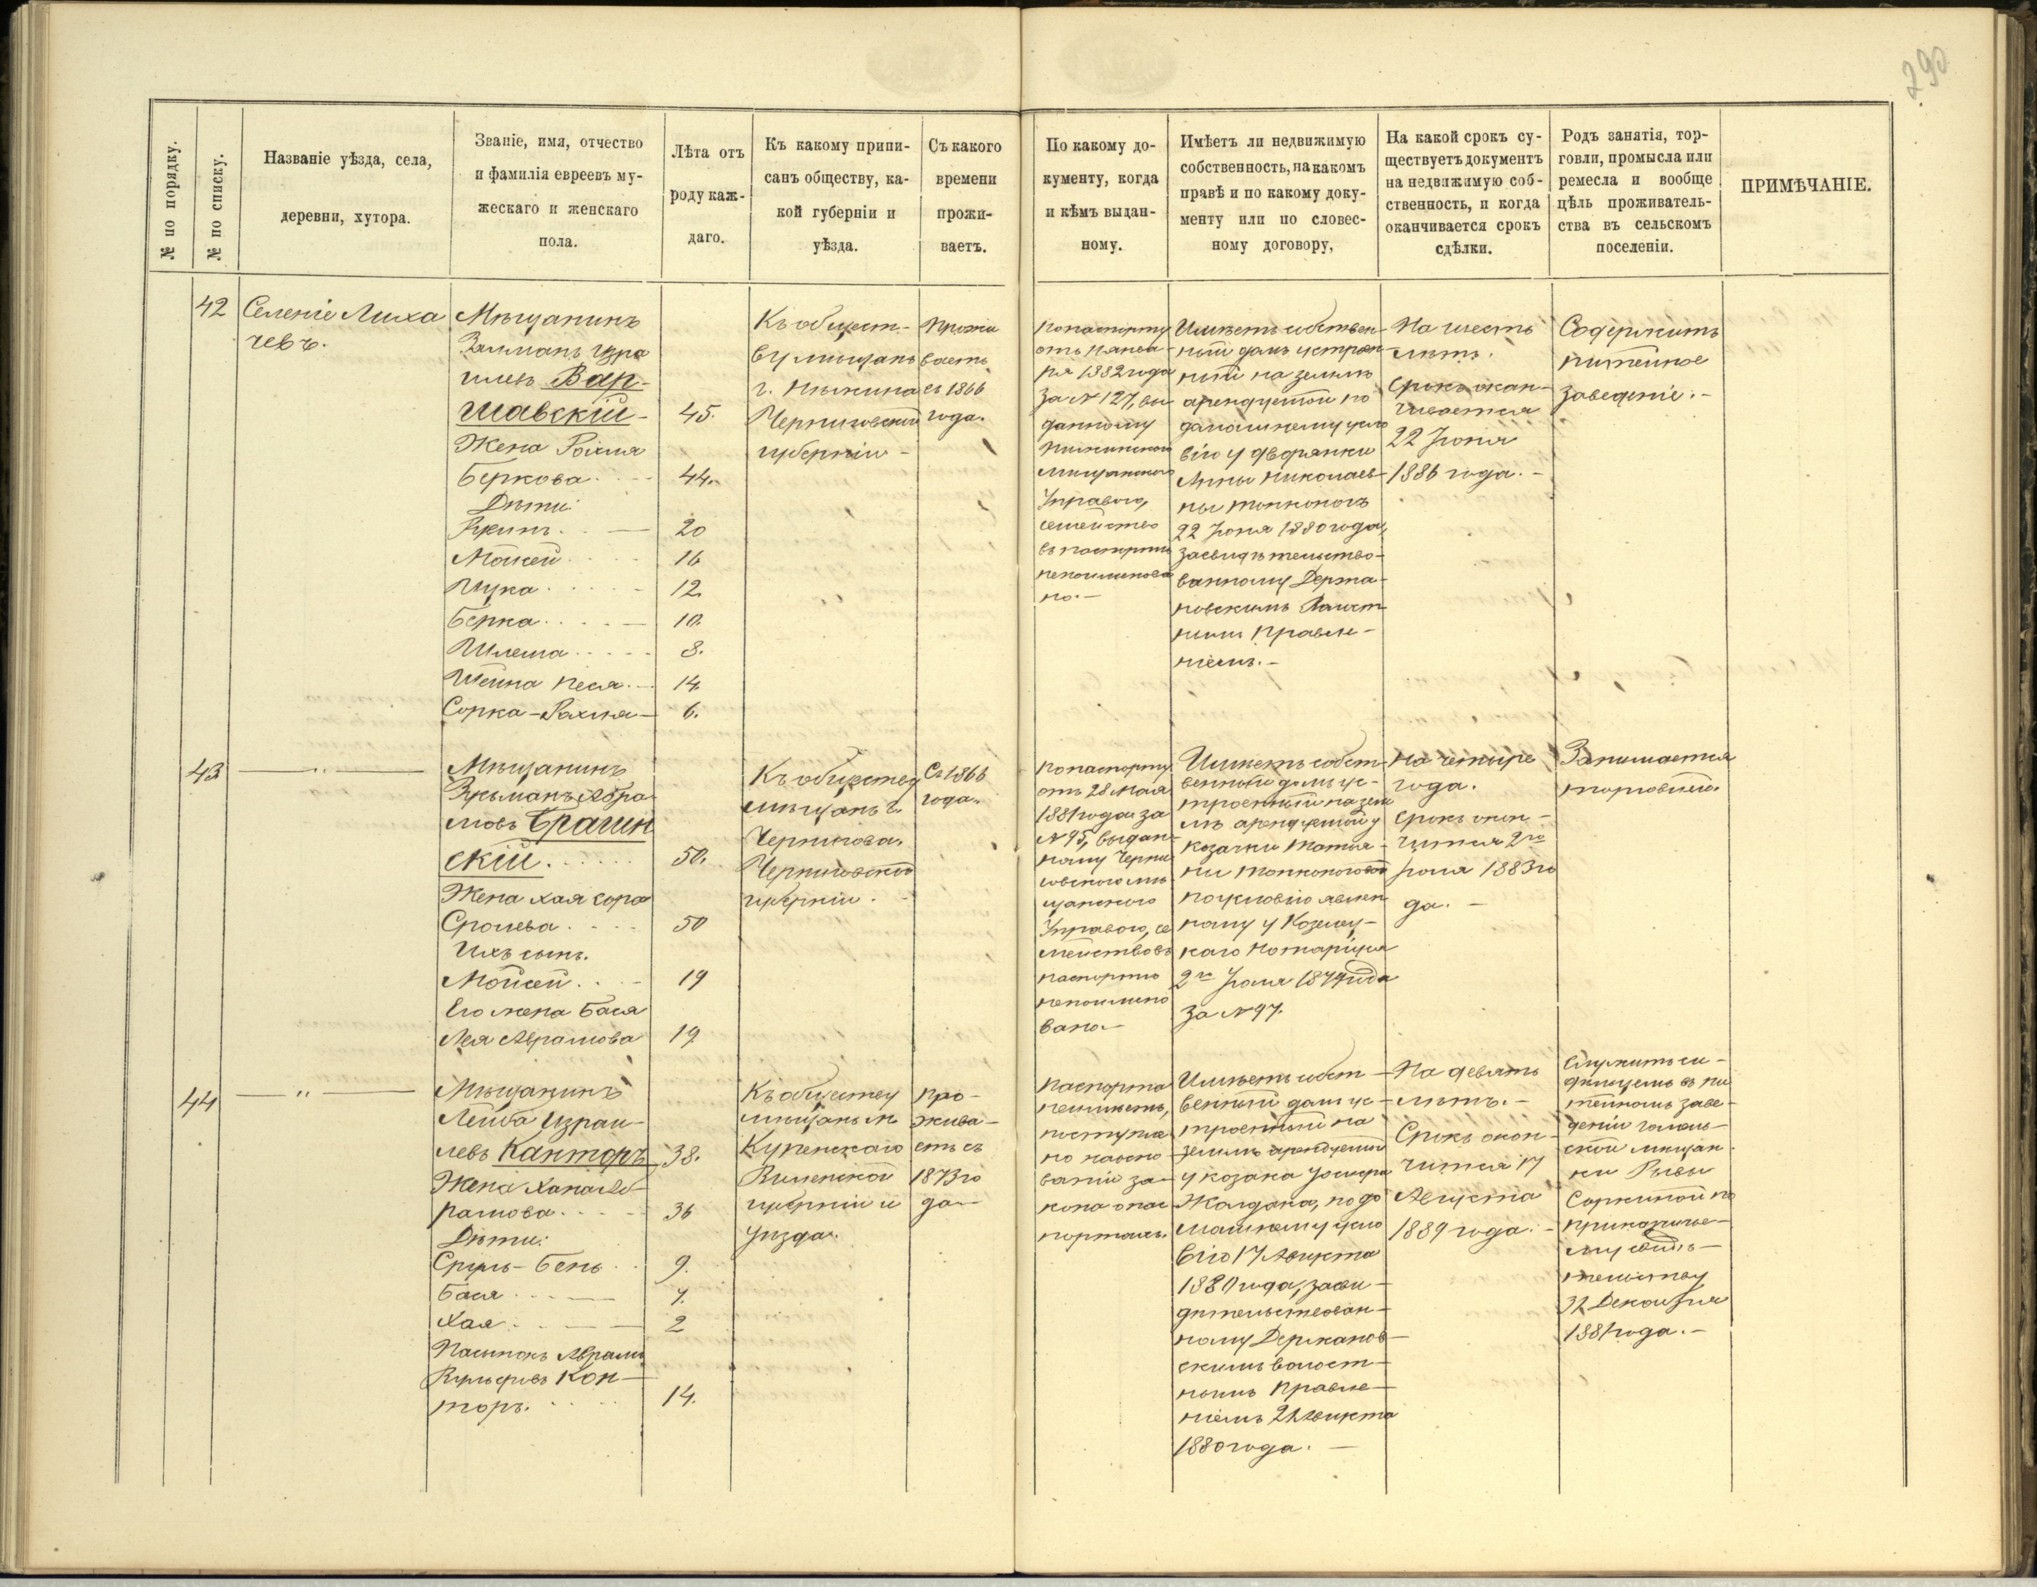 290
№ по порядку.
№ по списку.
Названіе уѣзда, села,
деревни, хутора.
Званіе, имя, отчество
и фамилія евреевъ му-
жескаго и женскаго
пола.
Лѣта отъ
роду каж-
даго.
Къ какому припи-
санъ обществу, ка-
кой губерніи и
уѣзда.
Съ какого
времени
прожи-
ваетъ.
По какому до-
кументу, когда
и кѣмъ выдан-
ному.
Имѣетъ ли недвижимую
собственность, на какомъ
правѣ и по какому доку-
менту или по словес-
ному договору,
На какой срокъ су-
ществуетъ документъ
на недвижимую соб-
ственность, и когда
оканчивается срокъ
сдѣлки.
Родъ занятія, тор-
говли, промысла или
ремесла и вообще
цѣль проживатель-
ства въ сельскомъ
поселеніи.
ПРИМѢЧАНІЕ.
42
Селеніе Лиха
чевъ.
Мѣщанинъ
Залманъ Изра
илевъ Вар-
шавскій - 45.
Жена Рохля
Беркова 44.
Дѣти:
20
Мойсей 16
12.
Берка 10.
Шлема 8.
Шейна Песя 14
Сорка-Рохля 6.
Къ общест-
ву мѣщанъ
г. Нѣжина
Черниговской
губерніи -
Прожи
ваетъ
съ 1866
года.
По паспорту
отъ Янва-
ря 1882 года
за № 127, вы
данному
Нѣжинской
Мѣщанскою
Управою,
семейство
въ паспортѣ
непоименова
но.-
Имѣетъ собствен-
ный домъ устроен-
ный на землѣ
арендуемой по
домашнему усло
вію у дворянки
Анны Николаев-
ны
22 Іюня 1880 года,
засвидѣтельство-
ванному Держа-
новскимъ Волост
нымъ Правле-
ніемъ.-
На шесть
лѣтъ.
Срокъ окан-
чивается
22 Іюня
1886 года.-
Содержитъ
питейное
заведеніе.-
43
- " -
Мѣщанинъ
Зусьманъ Абра
мовъ Брагин
скій 50.
Жена Хая Сора
Сролева 50
Ихъ сынъ.
Мойсей 19
Его жена Бася
Лея Аврамова 19
Къ обществу
мѣщанъ г.
Чернигова.
Черниговской
губерніи.
Съ 1866
года.
По паспорту
отъ 28 Мая
1881 года за
№ 95, выдан-
ному Черни
говскою мѣ
щанскою
Управою, се
мейство въ
паспортѣ
непоимено
вано.-
Имѣетъ собст-
венный домъ ус-
троенный на зем
лѣ арендуемой у
козачки Татья-
ны
по условію явлен
ному у Козелец-
каго Нотаріуса
2го Іюля 1879 года
за № 97.
На четыре
года.
Срокъ окон-
чится 2го
Іюля 1883 го
да.-
Занимается
торговлей.
44
- " -
Мѣщанинъ
Лейба Израи-
левъ Канторъ 38.
Жена Хана Аб-
рамова 36
Дѣти:
Сруль-Бень 9.
Бася
Хая 2
Пасынокъ Аврамъ
Кон-
торъ. 14.
Къ обществу
мѣщанъ м.
Купенскаго
Виленской
губерніи и
уѣзда.
Про-
жива-
етъ съ
1873 го
да-
Паспорта
неимѣетъ,
поступле
но наосно
ваніи за-
кона о пас
портахъ.
Имѣетъ собст-
венный домъ ус-
троенный на
землѣ арендуемой
у козака
Жолдака, по до
машнему усло
вію 17 Августа
1880 года, засви-
дѣтельствован-
ному Держанов-
скимъ волост-
нымъ Правле-
ніемъ 21 Августа
1880 года.-
На девять
лѣтъ.-
Срокъ окон-
чится 17
Августа
1889 года.-
Служитъ си-
дѣльцемъ въ пи
тейномъ заве-
деніи гомель-
ской мѣщан
ки Ривы
Соркиной по
приказчичье-
му свидѣ-
тельству
31 Декабря
1881 года.-